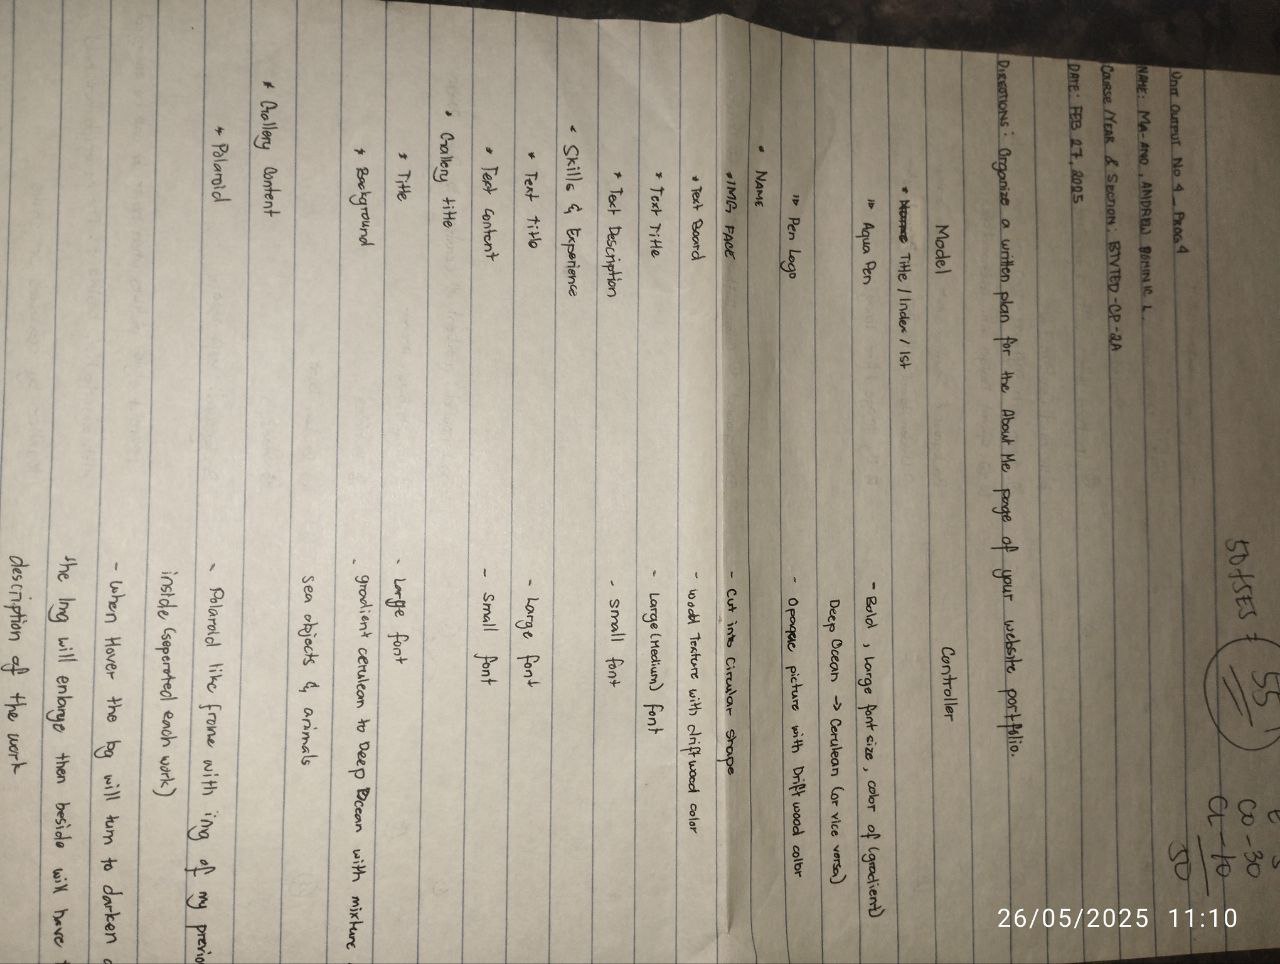 50+5ES = 55
E 5
CO - 30
CL - 10
50
26/05/2025 11:10
UNIT OUTPUT NO 4 _ PROG 4
NAME: MA-ANO, ANDREW DOMINIC L.
COURSE/YEAR & SECTION: BTVTED-CP-2A
DATE: FEB 27, 2025
DIRECTIONS: Organize a written plan for the About Me page of your website portfolio.
Model Controller
* Name Title / Index / 1st
Aqua Pen - Bold, Large font size, color of (gradient)
Deep Ocean → Cerulean (or vice versa)
Pen Logo - Opaque picture with Driftwood color
• NAME
• IMG FACE - Cut into Circular shape
* Text Board - wood Texture with driftwood color
* Text Title - Large (Medium) font
* Text Description - small font
• Skills & Experience
* Text title - Large font
* Text content - small font
• Gallery title
* Title - Large font
* Background - gradient cerulean to Deep Ocean with mixture
sea objects & animals
* Gallery Content
* Polaroid - Polaroid like frame with img of my previo
inside (seperated each work)
- when Hover the bg will turn to darken
the Img will enlarge then beside will have
description of the work